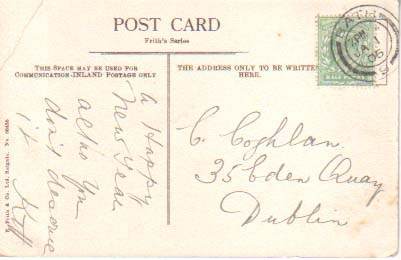 POST CARD
Frith's Series
THIS SPACE MAY BE USED FOR
COMMUNICATION - INLAND POSTAGE ONLY
THE ADDRESS ONLY TO BE WRITTEN
HERE.
A Happy
New Year
altho' you
don't deserve
it
C. Coghlan.
35 Eden Quay
Dublin
HALF PENNY
Frith & Co. Ltd., Reigate. No.